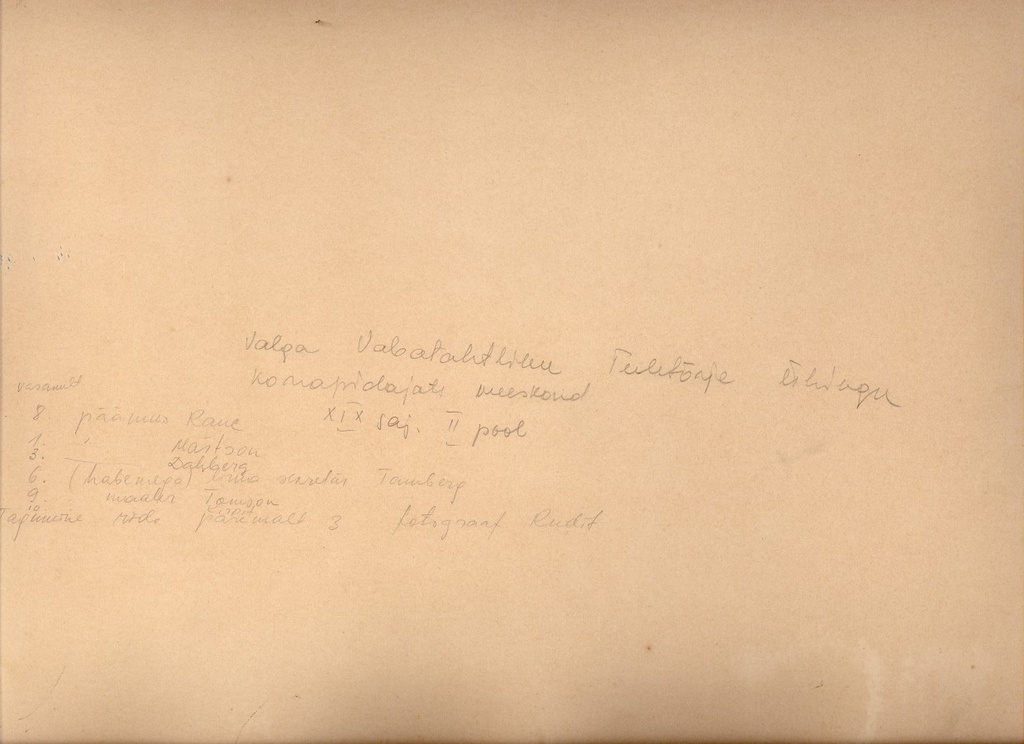 Valga Vabatahtliku Tuletõrje Ühingu
Korrapidajate meeskond
XIX saj. II pool
vasakult
8 päämees Rane
1. " Märtson
3. Dahlberg
6. (habemega) linna sekretär Tamberg
9. maaler Tomson
Tagumine rida paremalt 3 fotograaf Rudit